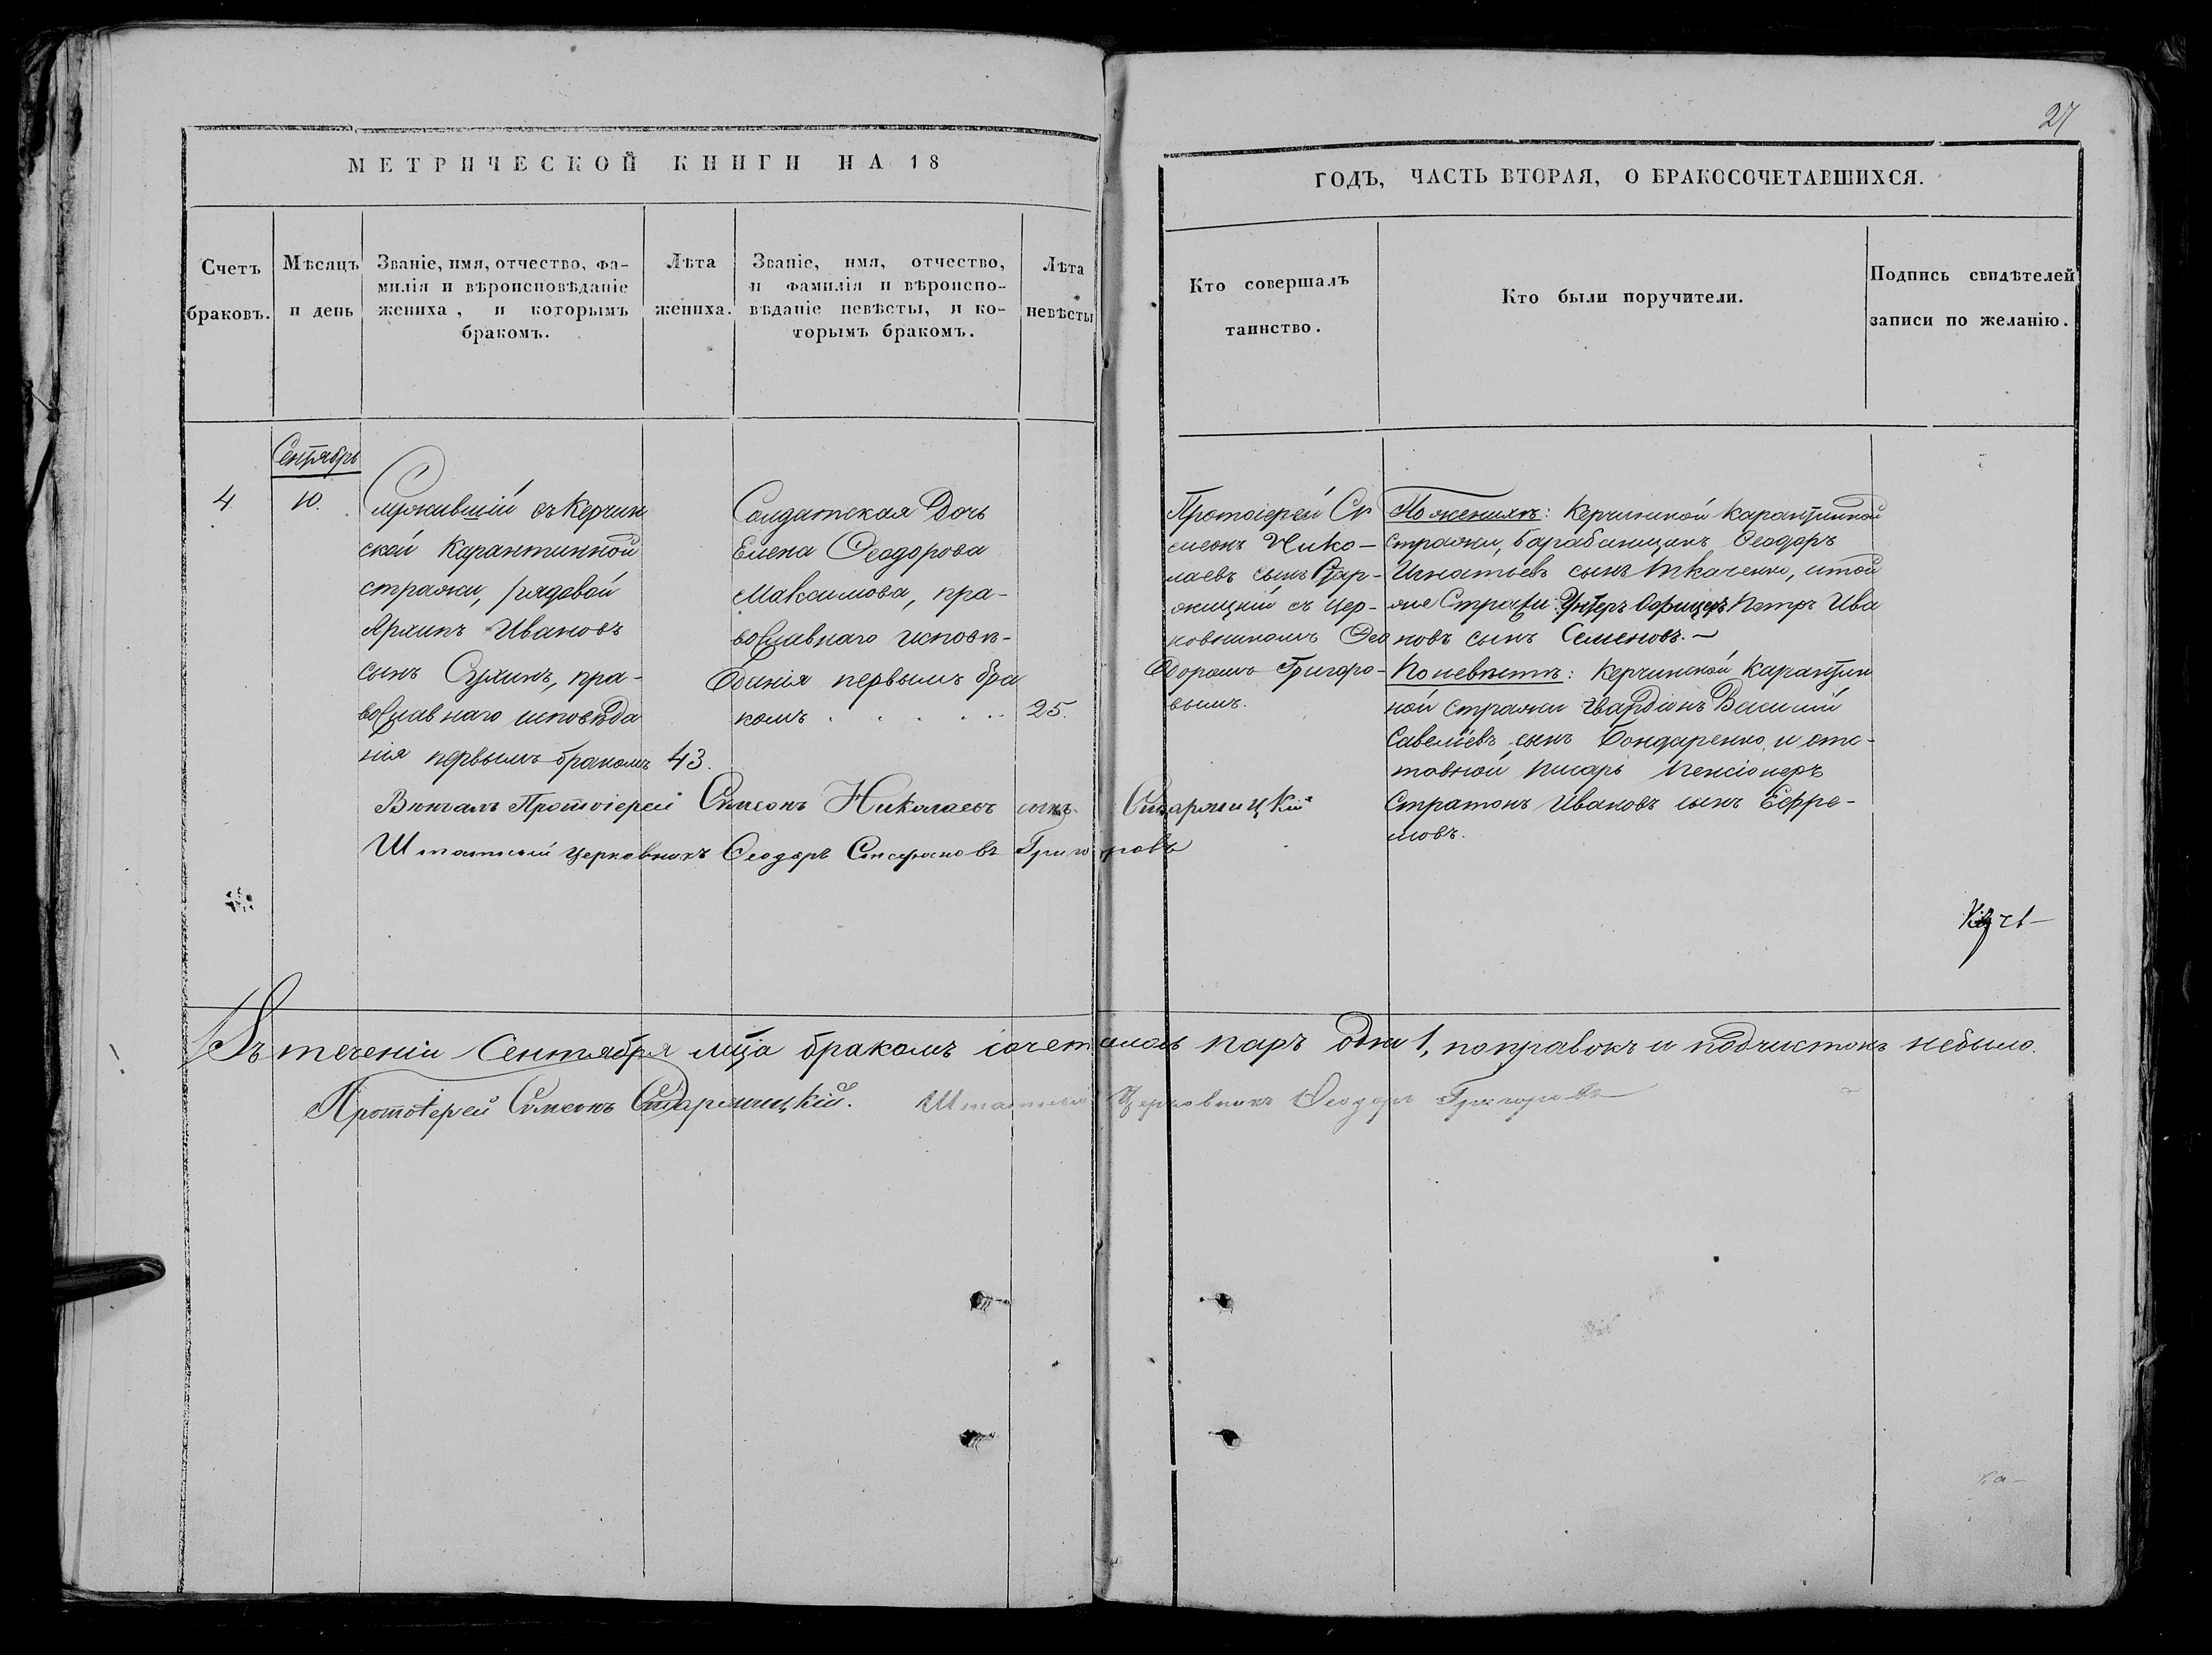 27
МЕТРИЧЕСКОЙ КНИГИ НА 18
ГОДЪ, ЧАСТЬ ВТОРАЯ, О БРАКОСОЧЕТАВШИХСЯ.
Счетъ
браковъ.
Мѣсяцъ
и день
Званіе, имя, отчество, фа-
милія и вѣроисповѣданіе
жениха, и которымъ
бракомъ.
Лѣта
жениха.
Званіе, имя, отчество,
и фамилія и вѣроиспо-
вѣданіе невѣсты, и ко-
торымъ бракомъ.
Лѣта
невѣсты
Кто совершалъ
таинство.
Кто были поручители.
Подпись свидѣтелей
записи по желанію.
4
Сентябрь
10.
Служившій въ Керчин
ской Карантинной
стражи, рядовой
Архипъ Ивановъ
сынъ, пра-
вославнаго исповѣда
нія первымъ бракомъ
43.
Солдатская Дочь
Елена Ѳеодорова
Максимова, пра-
вославнаго исповѣ-
данія первымъ бра
комъ . . . . . .
25.
Протоіерей Си
меонъ Нико-
лаевъ сынъ Стар-
жицкій съ цер-
ковникомъ Ѳео
доромъ Григоро-
вымъ.
По женихѣ: Керчинской Карантинной
стражи, барабанщикъ Ѳеодоръ
Игнатьевъ сынъ Ткаченко, и той
же Стражи Унтеръ Офицеръ Петръ Ива
новъ сынъ Семеновъ. –
По невѣстѣ: Керчинской Карантин
ной стражи гвардіонъ Василій
Савеліевъ сынъ Бондаренко и отс-
тавной писарь пенсіонеръ
Стратонъ Ивановъ сынъ Ефре-
мовъ.
Вѣнчалъ Протоіерей Симеонъ Николаевъ сынъ Старжицкій
Штатный церковникъ Ѳеодоръ Стефановъ Григоровъ
Въ теченіи Сентября мца бракомъ сочеталось паръ одна 1, поправокъ и подчистокъ небыло.
Протоіерей Симеонъ Старжицкій. Штатный Церковникъ Ѳеодоръ Григоровъ